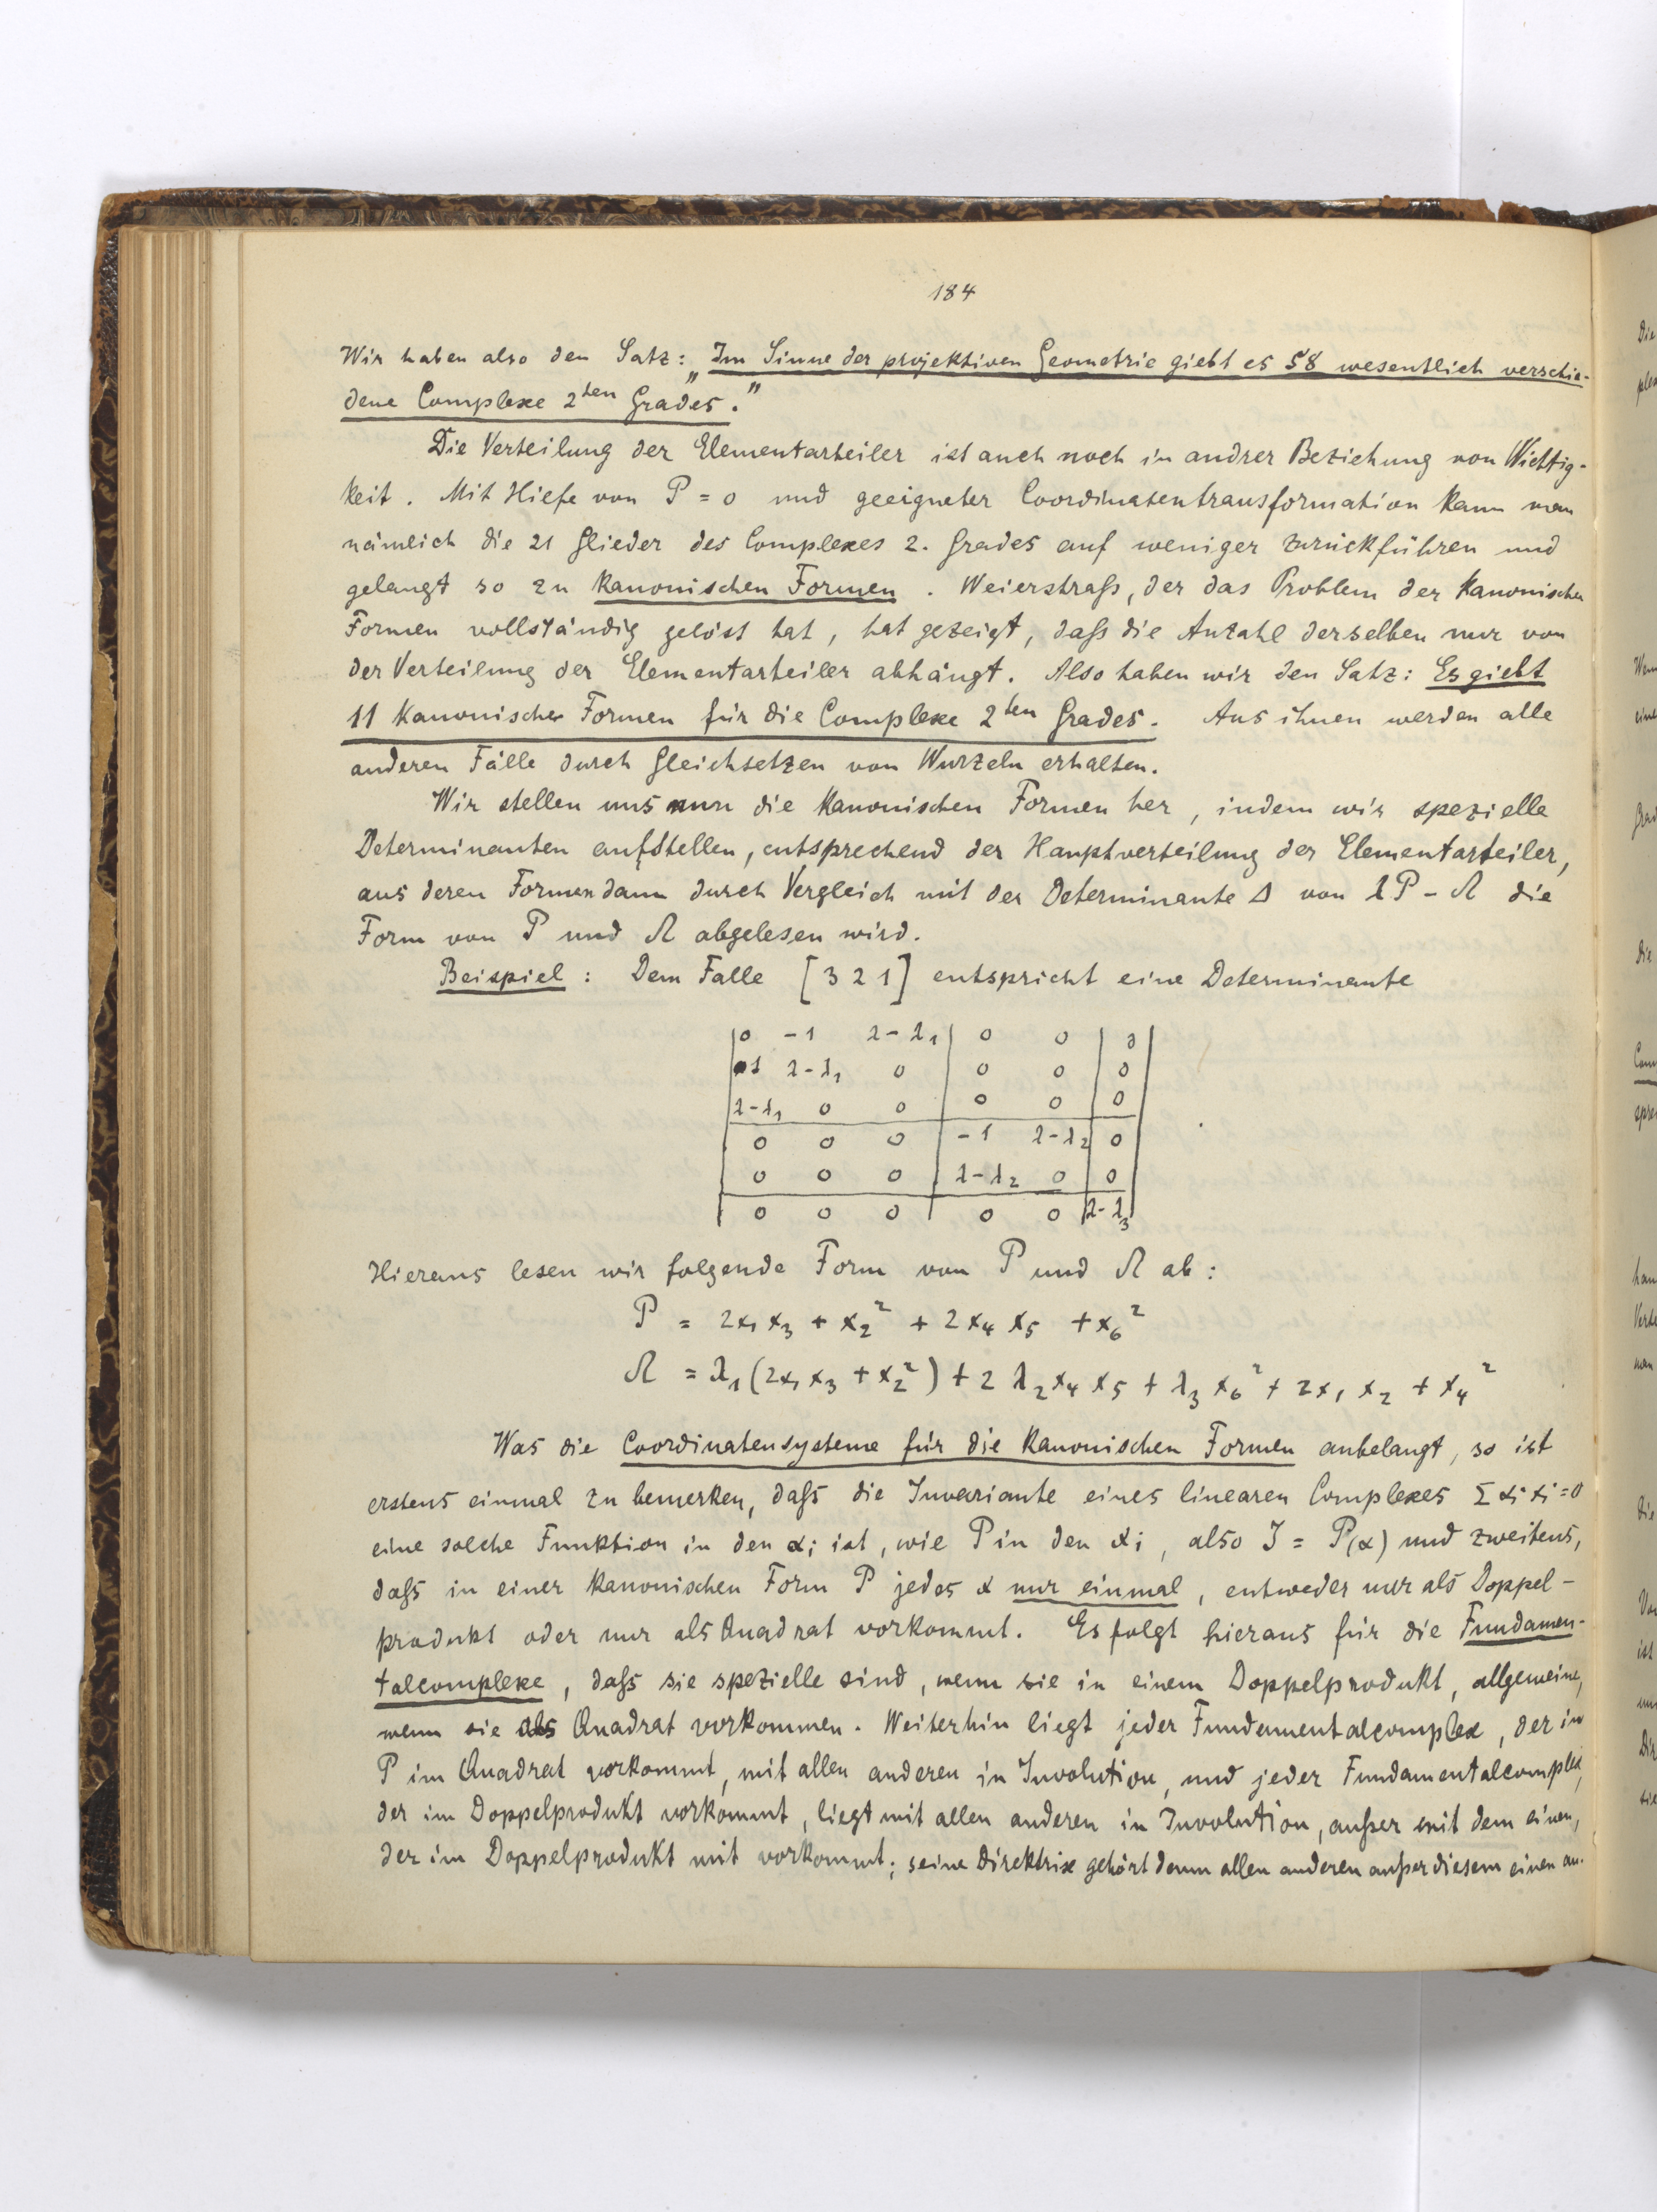 184
Wir haben also den Satz: „Im Sinne der projektiven Geometrie giebt es 58 wesentlich verschie-
dene Complexe 2ten Grades.”
Die Verteilung der Elementarteiler ist auch noch in andrer Beziehung von Wichtig-
keit. Mit Hilfe von P = 0 und geeigneter Coordinatentransformation kann man
nämlich die 21 Glieder des Complexes 2. Grades auf weniger zurückführen und
gelangt so zu kanonischen Formen. Weierstraß, der das Problem der kanonischen
Formen vollständig gelöst hat, hat gezeigt, daß die Anzahl derselben nur von
der Verteilung der Elementarteiler abhängt. Also haben wir den Satz: Es giebt
11 kanonische Formen für die Complexe 2ten Grades. Aus ihnen werden alle
anderen Fälle durch Gleichsetzen von Wurzeln erhalten.
Wir stellen uns nun die kanonischen Formen her, indem wir spezielle
Determinanten aufstellen, entsprechend der Hauptverteilung der Elementarteiler,
aus deren Formen dann durch Vergleich mit der Determinante Δ von λP - Ω die
Form von P und Ω abgelesen wird.
Beispiel: Dem Falle [3 2 1] entspricht eine Determinante
| 0 -1 λ-λ1 | 0 0 | 0 |
| -1 λ-λ1 0 | 0 0 | 0 |
| λ-λ1 0 0 | 0 0 | 0 |
| 0 0 0 | -1 λ-λ2 | 0 |
| 0 0 0 | λ-λ2 0 | 0 |
| 0 0 0 | 0 0 | λ-λ3 |
Hieraus lesen wir folgende Form von P und Ω ab:
P = 2x1x3 + x2² + 2x4x5 + x6²
Ω = λ1(2x1x3 + x2²) + 2λ2x4x5 + λ3x6² + 2x1x2 + x4²
Was die Coordinatensysteme für die kanonischen Formen anbelangt, so ist
erstens einmal zu bemerken, daß die Invariante eines linearen Complexes Σαixi=0
eine solche Funktion in den αi ist, wie P in den xi, also J = P(α) und zweitens,
daß in einer kanonischen Form P jedes x nur einmal, entweder nur als Doppel-
produkt oder nur als Quadrat vorkommt. Es folgt hieraus für die Fundamen-
talcomplexe, daß sie spezielle sind, wenn sie in einem Doppelprodukt, allgemeine,
wenn sie als Quadrat vorkommen. Weiterhin liegt jeder Fundamentalcomplex, der in
P im Quadrat vorkommt, mit allen anderen in Involution, und jeder Fundamentalcomplex,
der im Doppelprodukt vorkommt, liegt mit allen anderen in Involution, außer mit dem einen,
der im Doppelprodukt mit vorkommt; seine Direktrix gehört denn allen anderen außer diesem einen an.